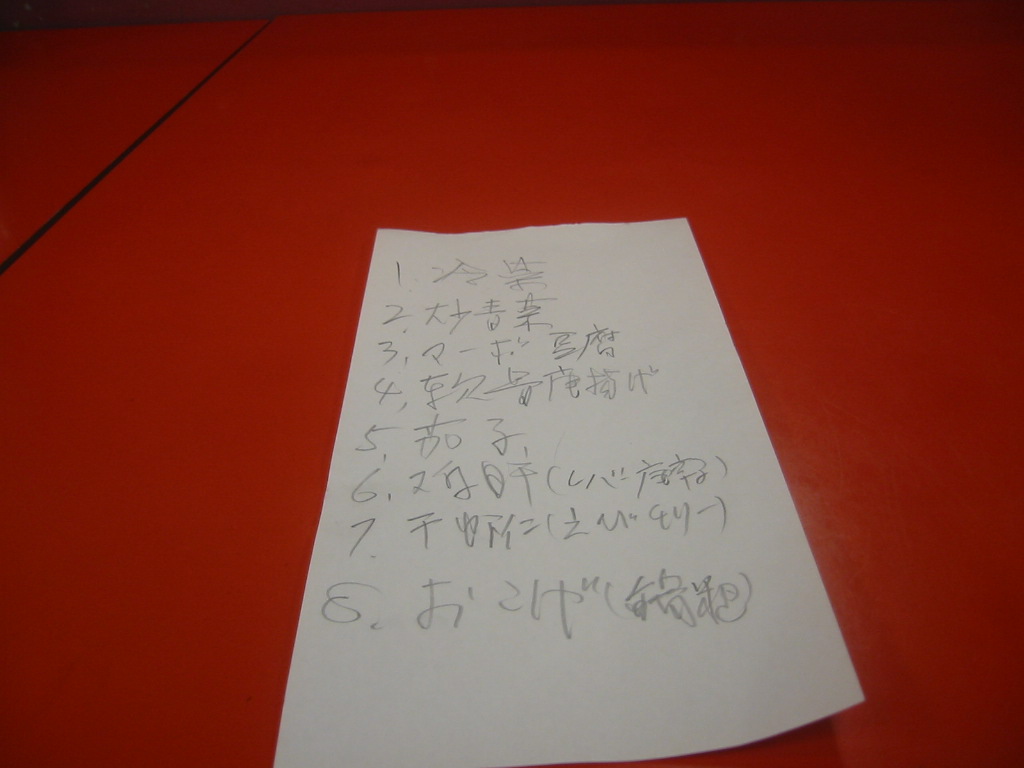 1. 冷菜
2. 炒青菜
3. マーボ豆腐
4. 軟骨唐揚げ
5. 茄子
6. 鸡肝(レバー唐辛子)
7. 干虾仁(えびチリー)
8. おこげ(鍋粑)